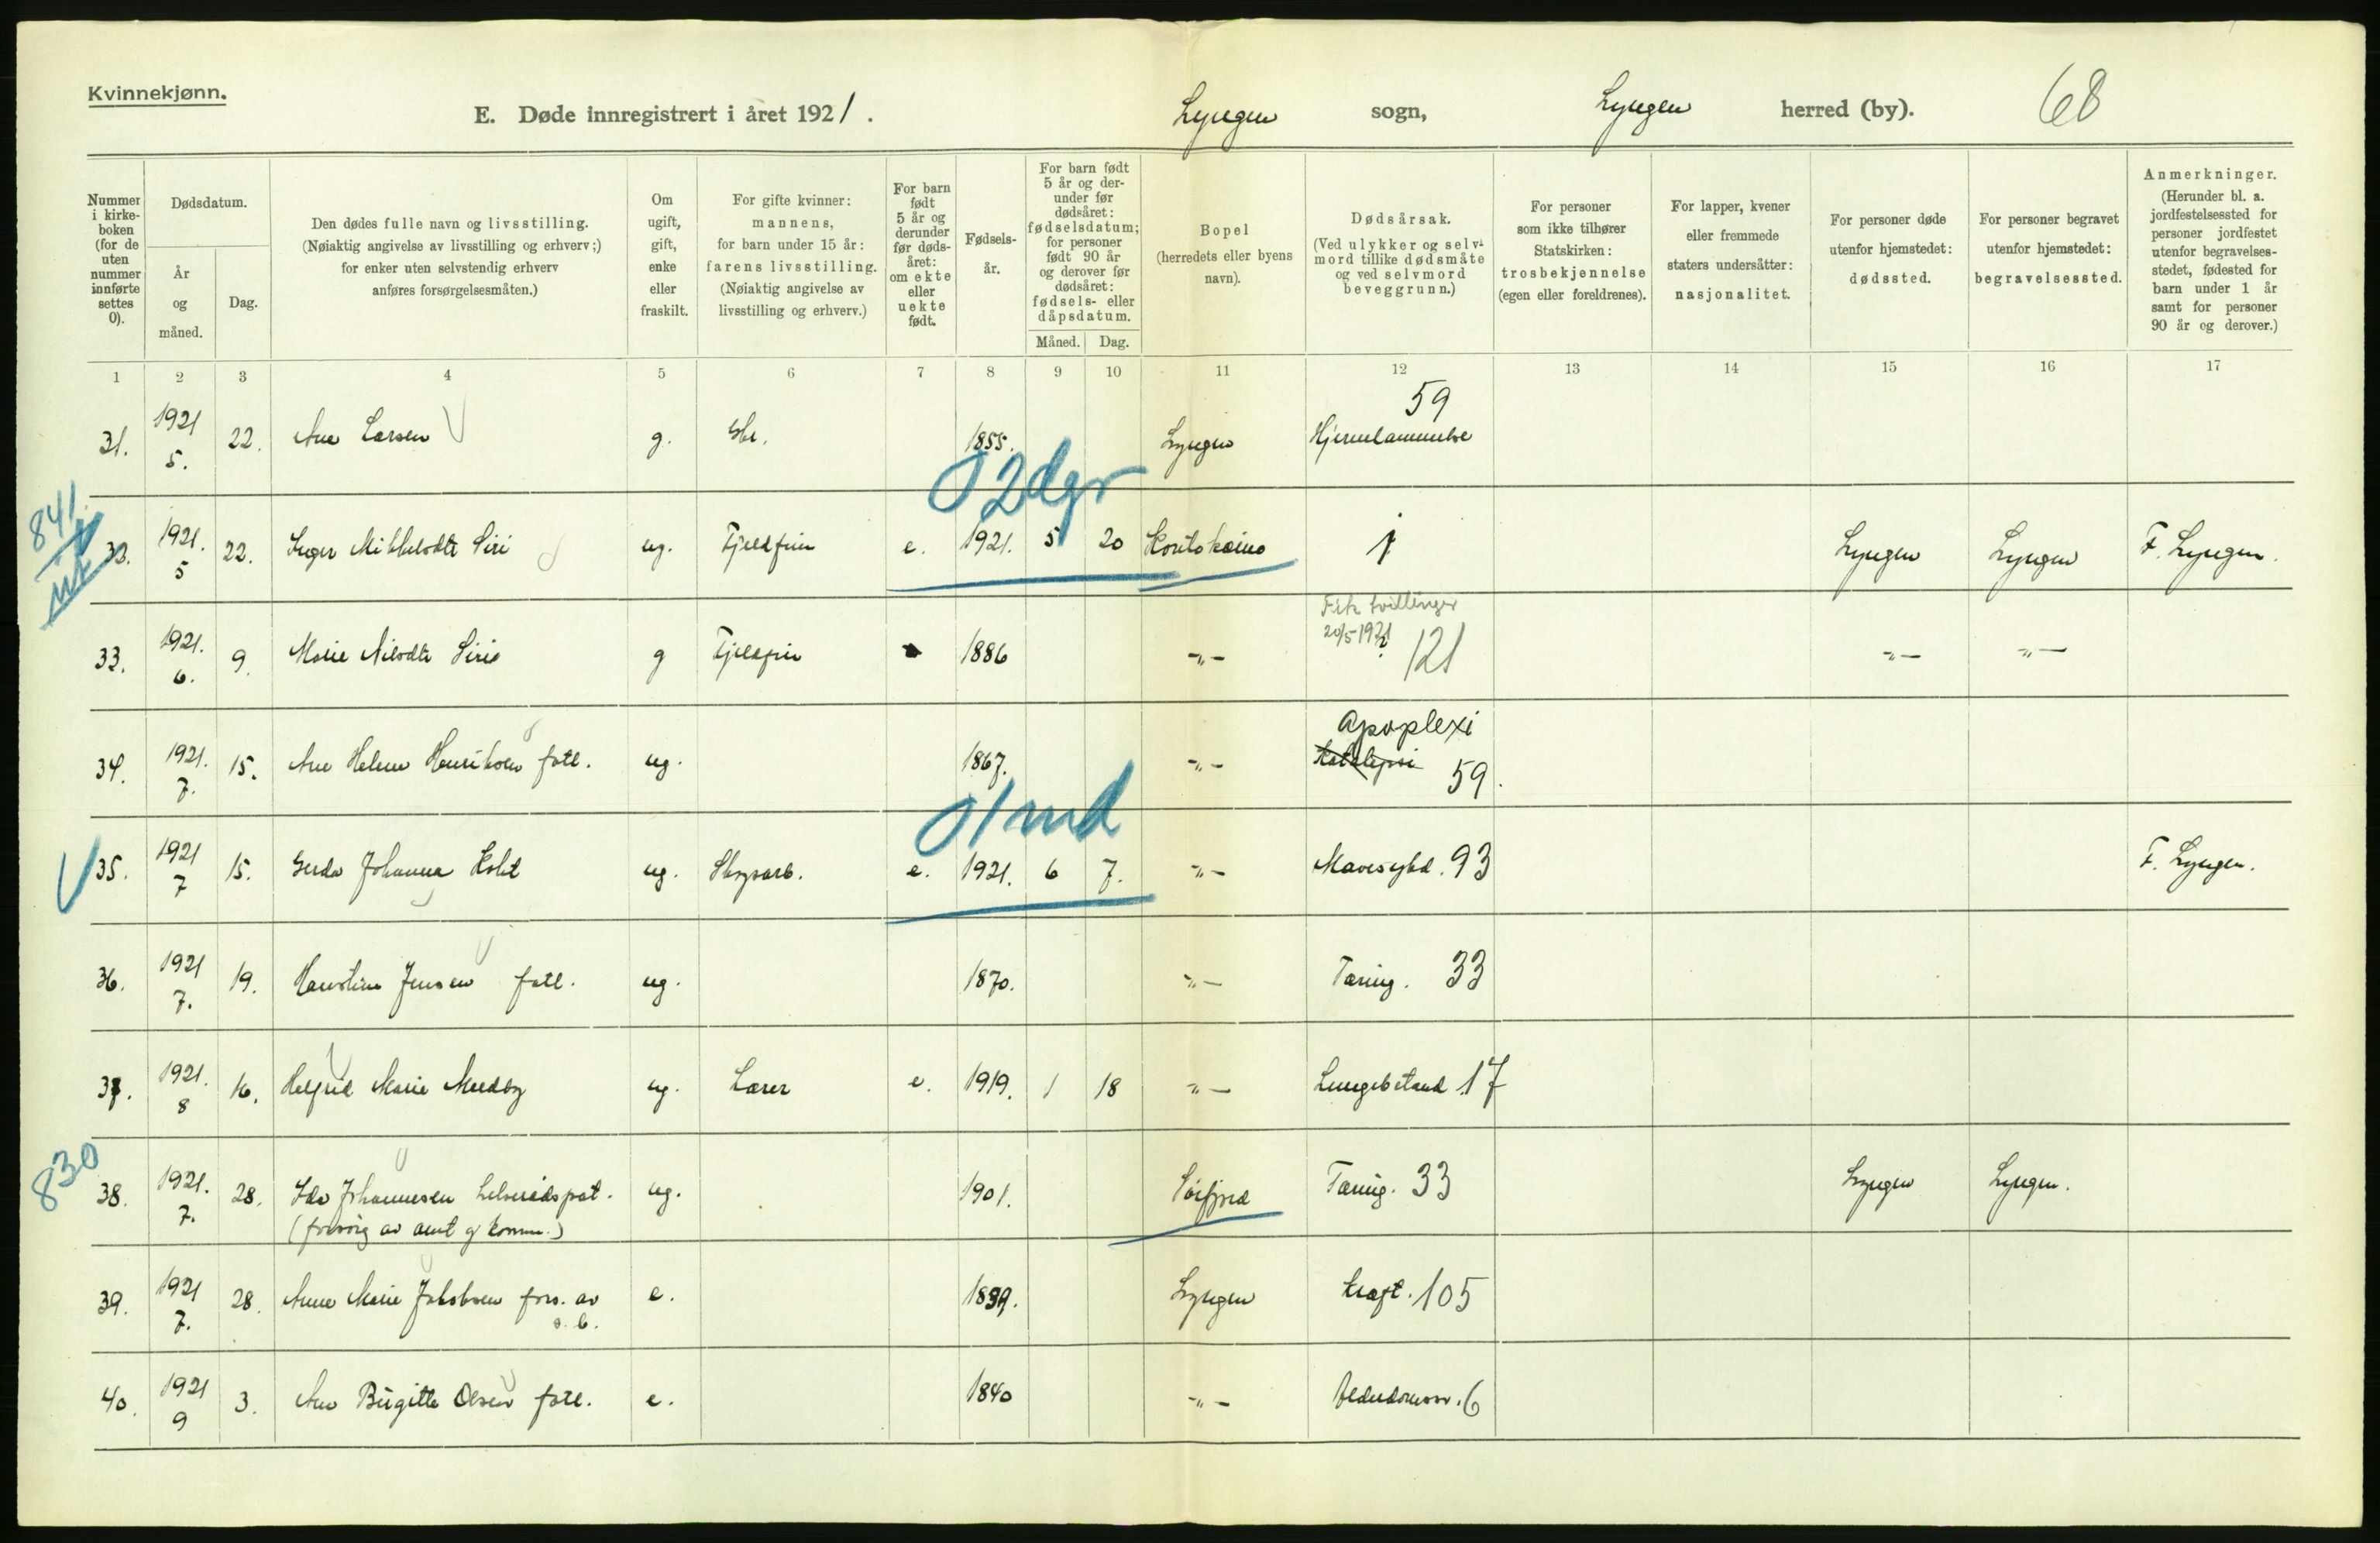 Kvinnekjønn.
E. Døde innregistrert i året 1921.
Lyngen sogn, Lyngen herred (by). 68
Nummer i kirkeboken (for de uten nummer innførte settes 0).
Dødsdatum.
År og måned.
Dag.
Den dødes fulle navn og livsstilling.
(Nøiaktig angivelse av livsstilling og erhverv;)
for enker uten selvstendig erhverv
anføres forsørgelsesmåten.)
Om ugift, gift, enke eller fraskilt.
For gifte kvinner: mannens, for barn under 15 år: farens livsstilling. (Nøiaktig angivelse av livsstilling og erhverv.)
For barn født 5 år og derunder før dødsåret: om ekte eller uekte født.
Fødselsår.
For barn født 5 år og derunder før dødsåret: fødselsdatum; for personer født 90 år og derover før dødsåret: fødsels- eller dåpsdatum.
Måned. Dag.
Bopel
(herredets eller byens navn).
Dødsårsak.
(Ved ulykker og selvmord tillike dødsmåte og ved selvmord beveggrunn.)
For personer som ikke tilhører Statskirken: trosbekjennelse (egen eller foreldrenes).
For lapper, kvener eller fremmede staters undersåtter: nasjonalitet.
For personer døde utenfor hjemstedet: dødssted.
For personer begravet utenfor hjemstedet: begravelsessted.
Anmerkninger.
(Herunder bl. a. jordfestelsessted for personer jordfestet utenfor begravelsesstedet, fødested for barn under 1 år samt for personer 90 år og derover.)
1 2 3 4 5 6 7 8 9 10 11 12 13 14 15 16 17
31. 1921 5. 22. Ane Larsen g. 1855. Lyngen Hjernelammelse 59
0 2 dgr
841
32. 1921. 5 22. Inger Mikkelsdtr Siri ug. Fjeldfin e. 1921. 5 20 Koutokeino Lyngen Lyngen F. Lyngen.
33. 1921. 6. 9. Marie Nilsdtr Siri g Fjeldfin 1886 -"- Fik tvillinger 20/5-1921 121 -"- -"-
34. 1921. 7. 15. Ane Helene Henriksen fatt. ug. 1867. -"- Apoplexi Katalepsi 59.
0 1 md
35. 1921 7 15. Gerda Johanna Holst ug. e. 1921. 6 7. -"- Mavesykd. 93 F. Lyngen.
36. 1921 7. 19. Jensen fatt. ug. 1870. -"- Tæring. 33
37. 1921. 8 16. Helfrid Marie Meedby ug. Lærer e. 1919. 1 18 -"- Lungebetænd. 17
830
38. 1921. 7. 28. Ida Johannesen ug. 1901. Sörfjord Tæring. 33 Lyngen Lyngen.
(forsörg av amt og komm.)
39. 1921 7. 28. Anne Marie Jakobsen fors. av e. 1839. Lyngen Kræft. 105
s. b.
40. 1921 9 3. Ane Birgitte Olsen fatt. e. 1840 -"- Alderdomssv. 6